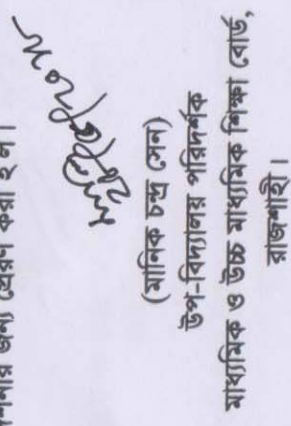 জন্য প্রেরণ করা হ'ল।
(মানিক চন্দ্র সেন)
উপ-বিদ্যালয় পরিদর্শক
মাধ্যমিক ও উচ্চ মাধ্যমিক শিক্ষা বোর্ড,
রাজশাহী।